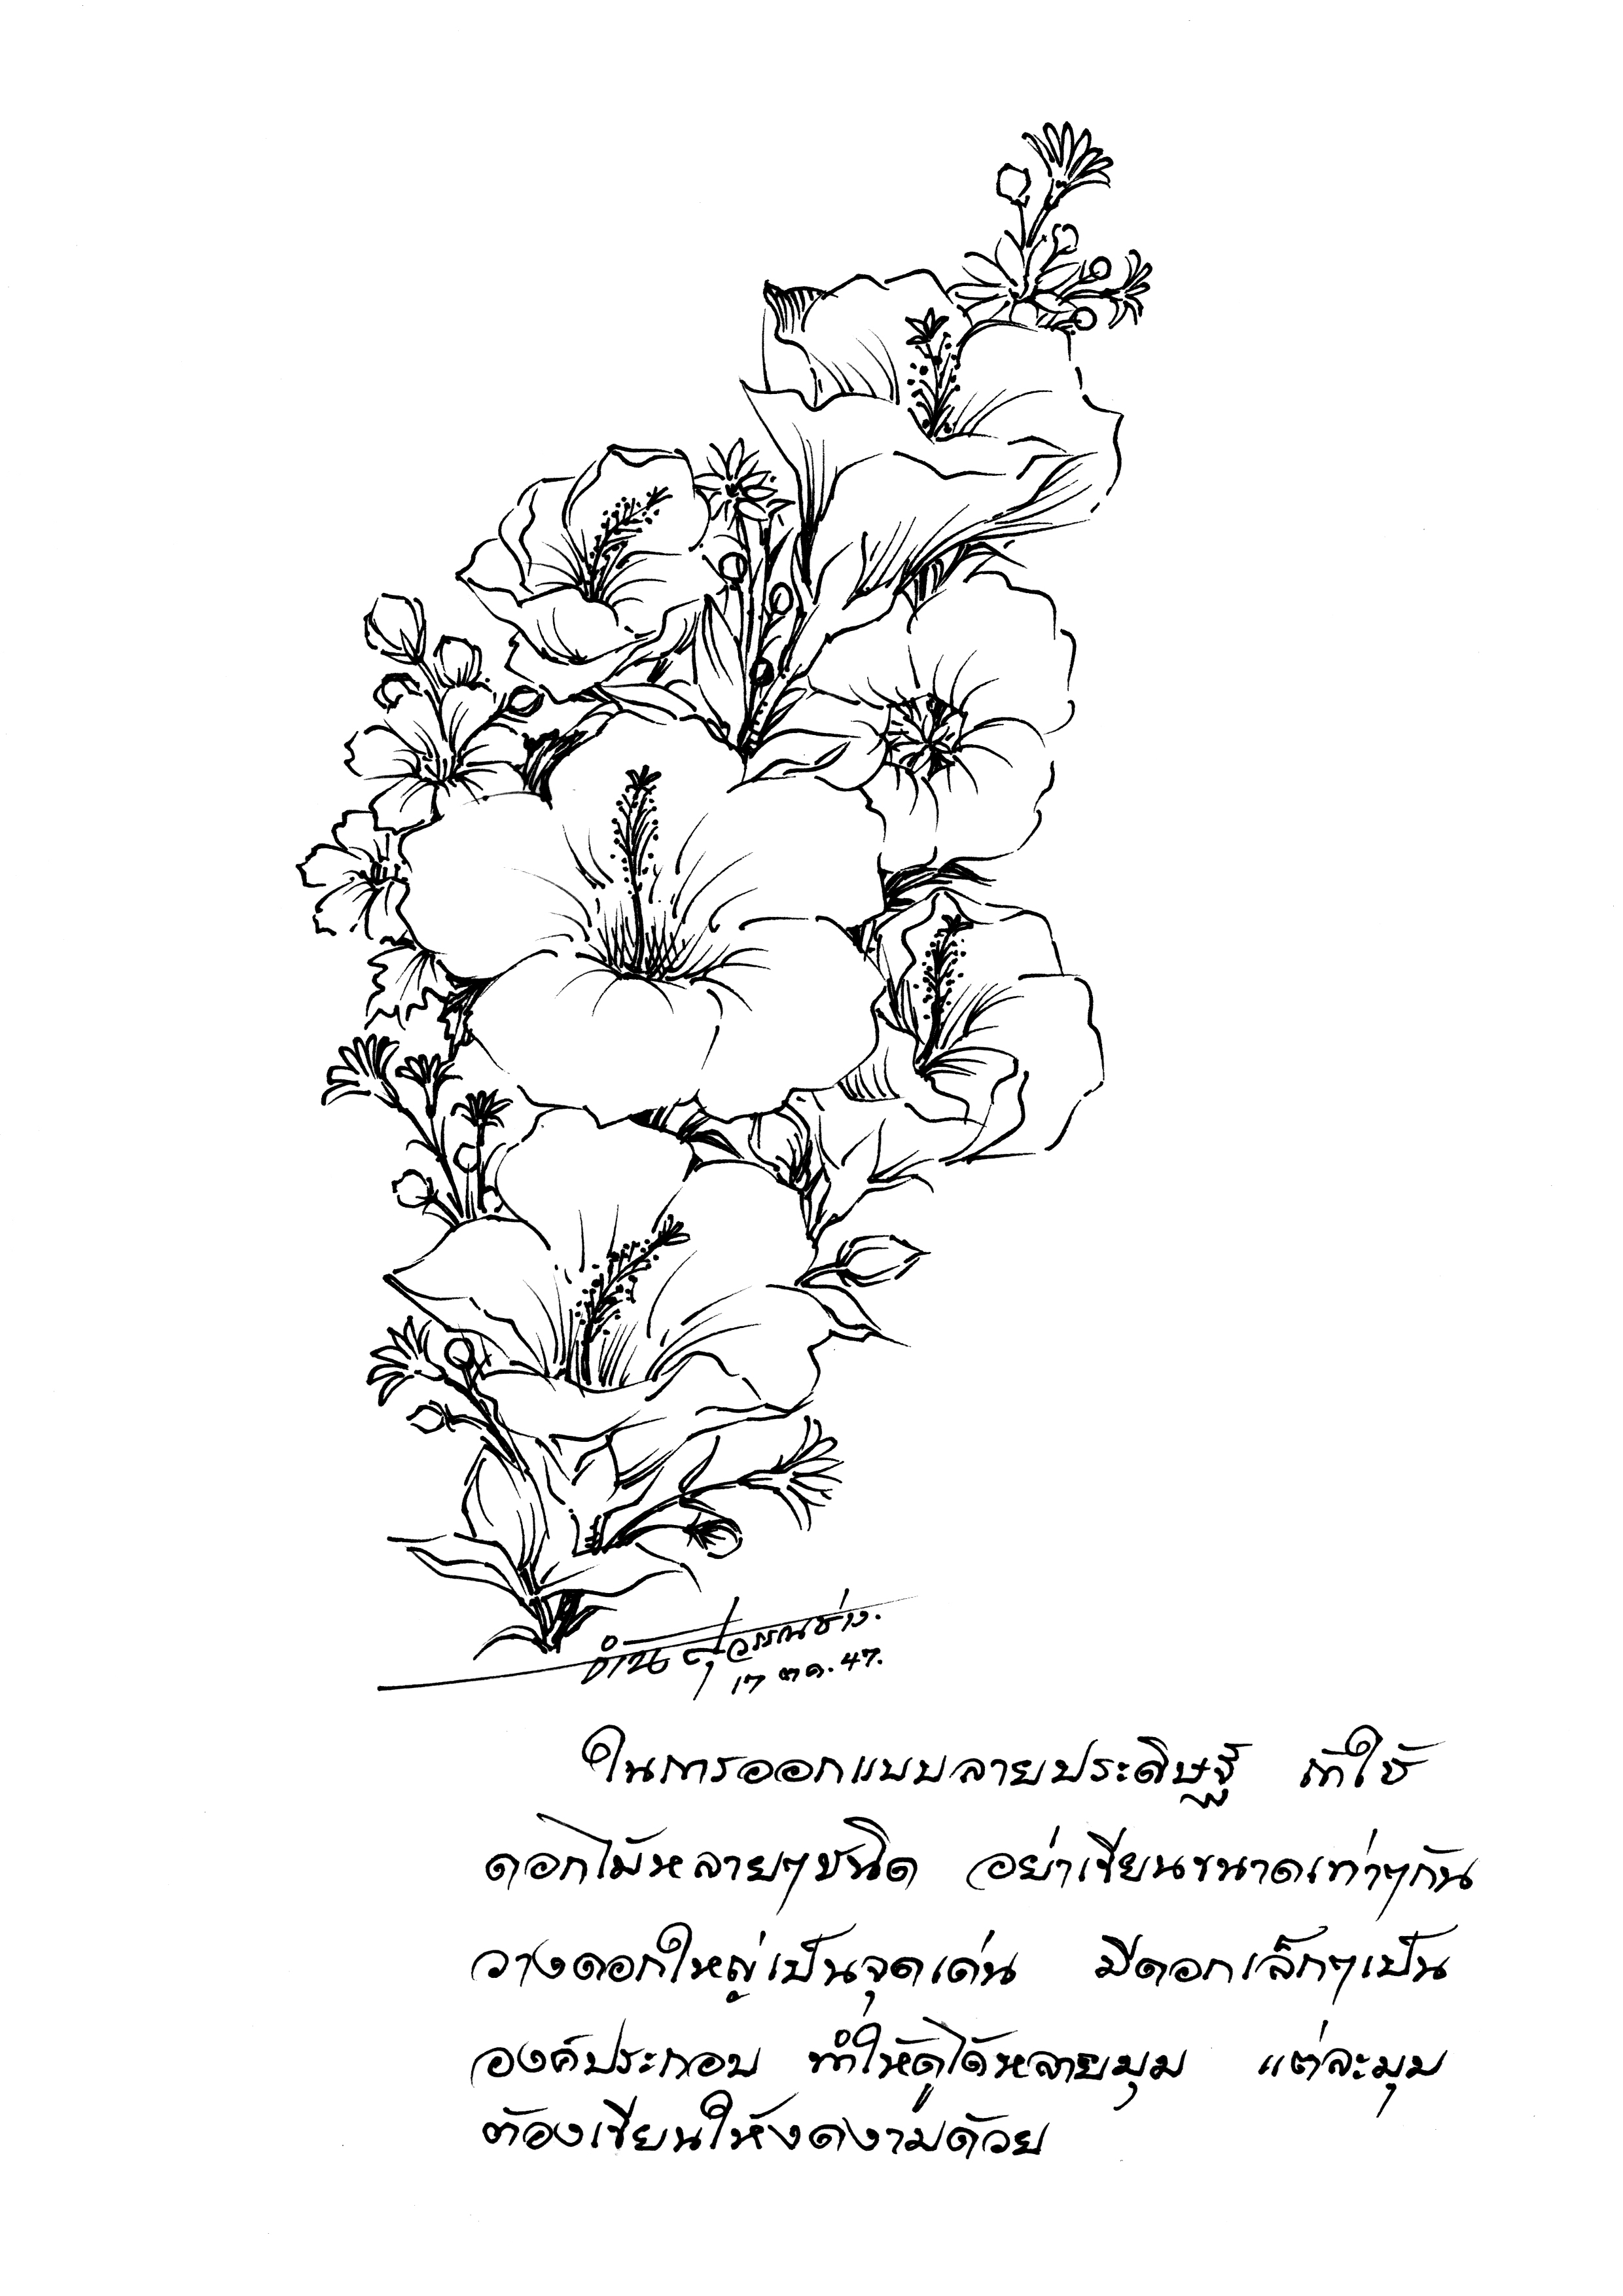 สุวรรณช่าง.
17 ตค. 47.
ในการออกแบบลายประดิษฐ์ ถ้าใช้
ดอกไม้หลายๆชนิด อย่าเขียนขนาดเท่าๆกัน
วางดอกใหญ่เป็นจุดเด่น มีดอกเล็กๆเป็น
องค์ประกอบ ทำให้ดูได้หลายมุม แต่ละมุม
ต้องเขียนให้งดงามด้วย